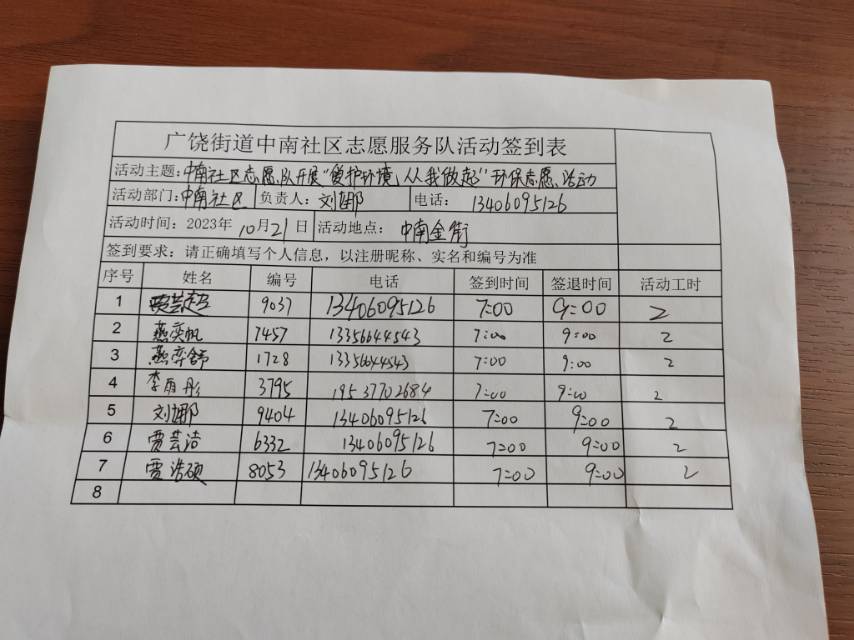 广饶街道中南社区志愿服务队活动签到表
活动主题：中南社区志愿队开展"爱护环境，从我做起"环保志愿活动
活动部门：中南社区 负责人：刘娜 电话：13406095126
活动时间：2023年10月21日 活动地点：中南金街
签到要求：请正确填写个人信息，以注册昵称、实名和编号为准
序号 姓名 编号 电话 签到时间 签退时间 活动工时
1 9037 13406095126 7:00 9:00 2
2 燕奕帆 7457 13356644543 7:00 9:00 2
3 燕奕舒 1728 13356644543 7:00 9:00 2
4 李雨彤 3795 19537702684 7:00 9:00 2
5 刘娜 9404 13406095126 7:00 9:00 2
6 贾芸洁 6332 13406095126 7:00 9:00 2
7 贾浩硕 8053 13406095126 7:00 9:00 2
8